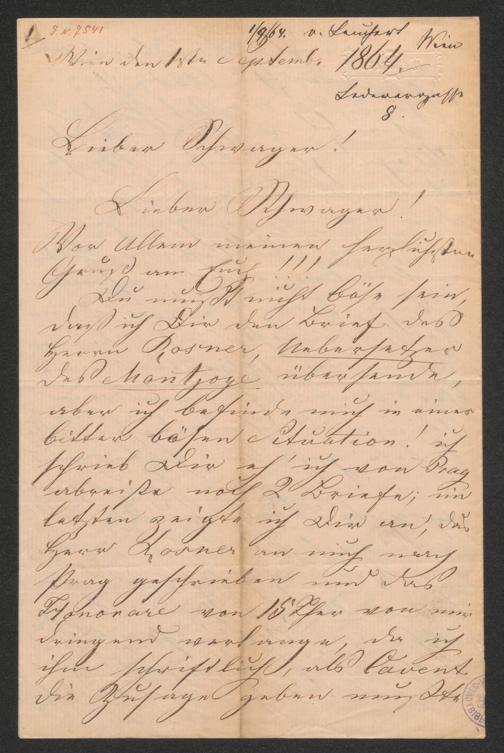 1
J. N. 8541
1/9/64. v. Leuchert Wien
Wien den 1ten Septemb. 1864.
Lederergasse
8.
Lieber Schwager!
Lieber Schwager!
Vor Allem meinen herzlichsten
Gruß an Euch!!!
Du mußt nicht böse sein,
daß ich Dir den Brief des
Herrn Rosner, Uebersetzer
des Montjoye, übersende,
aber ich befinde mich in einer
bitter bösen Situation! ich
schrieb Dir eh' ich von Prag
abreiste noch 2 Briefe; im
letzten zeigte ich Dir an, daß
Herr Rosner an mich nach
Prag geschrieben und das
Honorare von von mir
dringend verlange, da ich
ihm schriftlich, als Cavent
die Zusage geben mußte